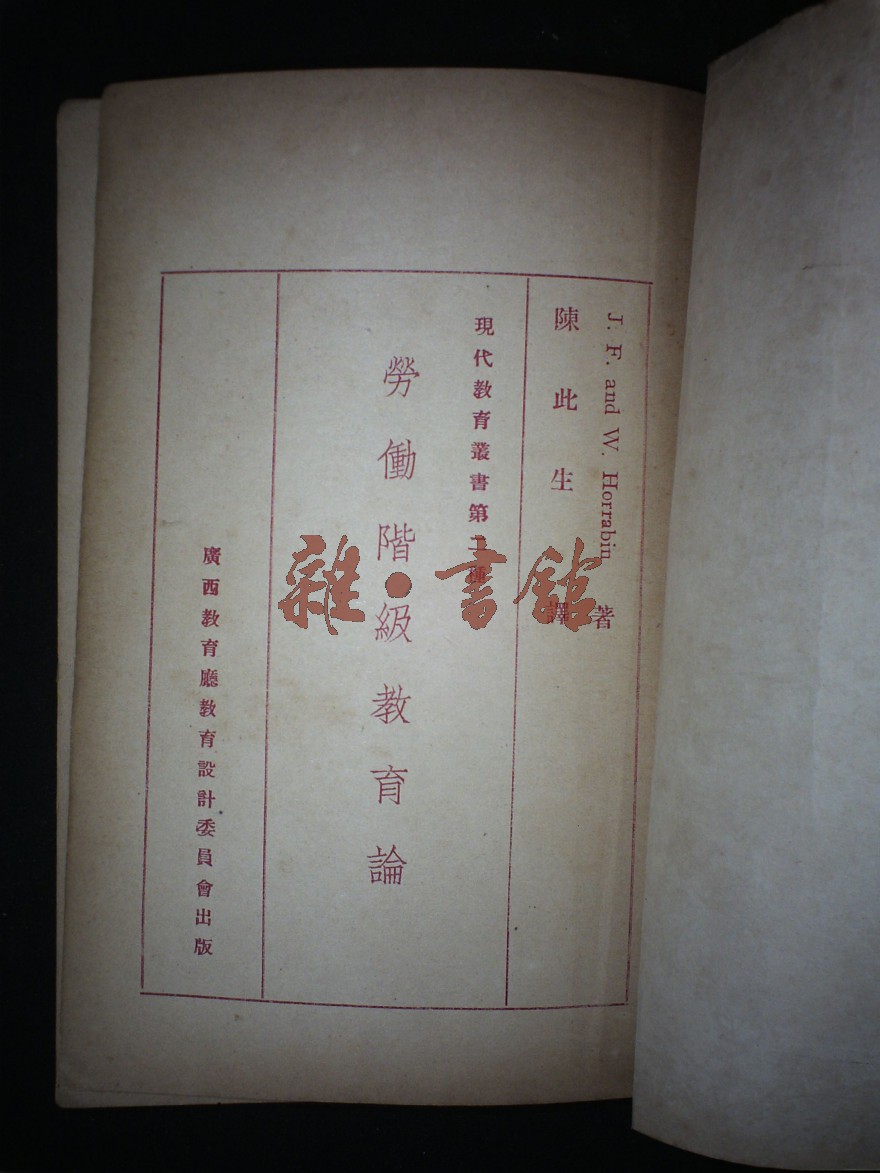 J. F. and W. Horrabin 著
陳此生 譯
現代教育叢書第二種
勞働階級教育論
廣西教育廳教育設計委員會出版
雜·書館